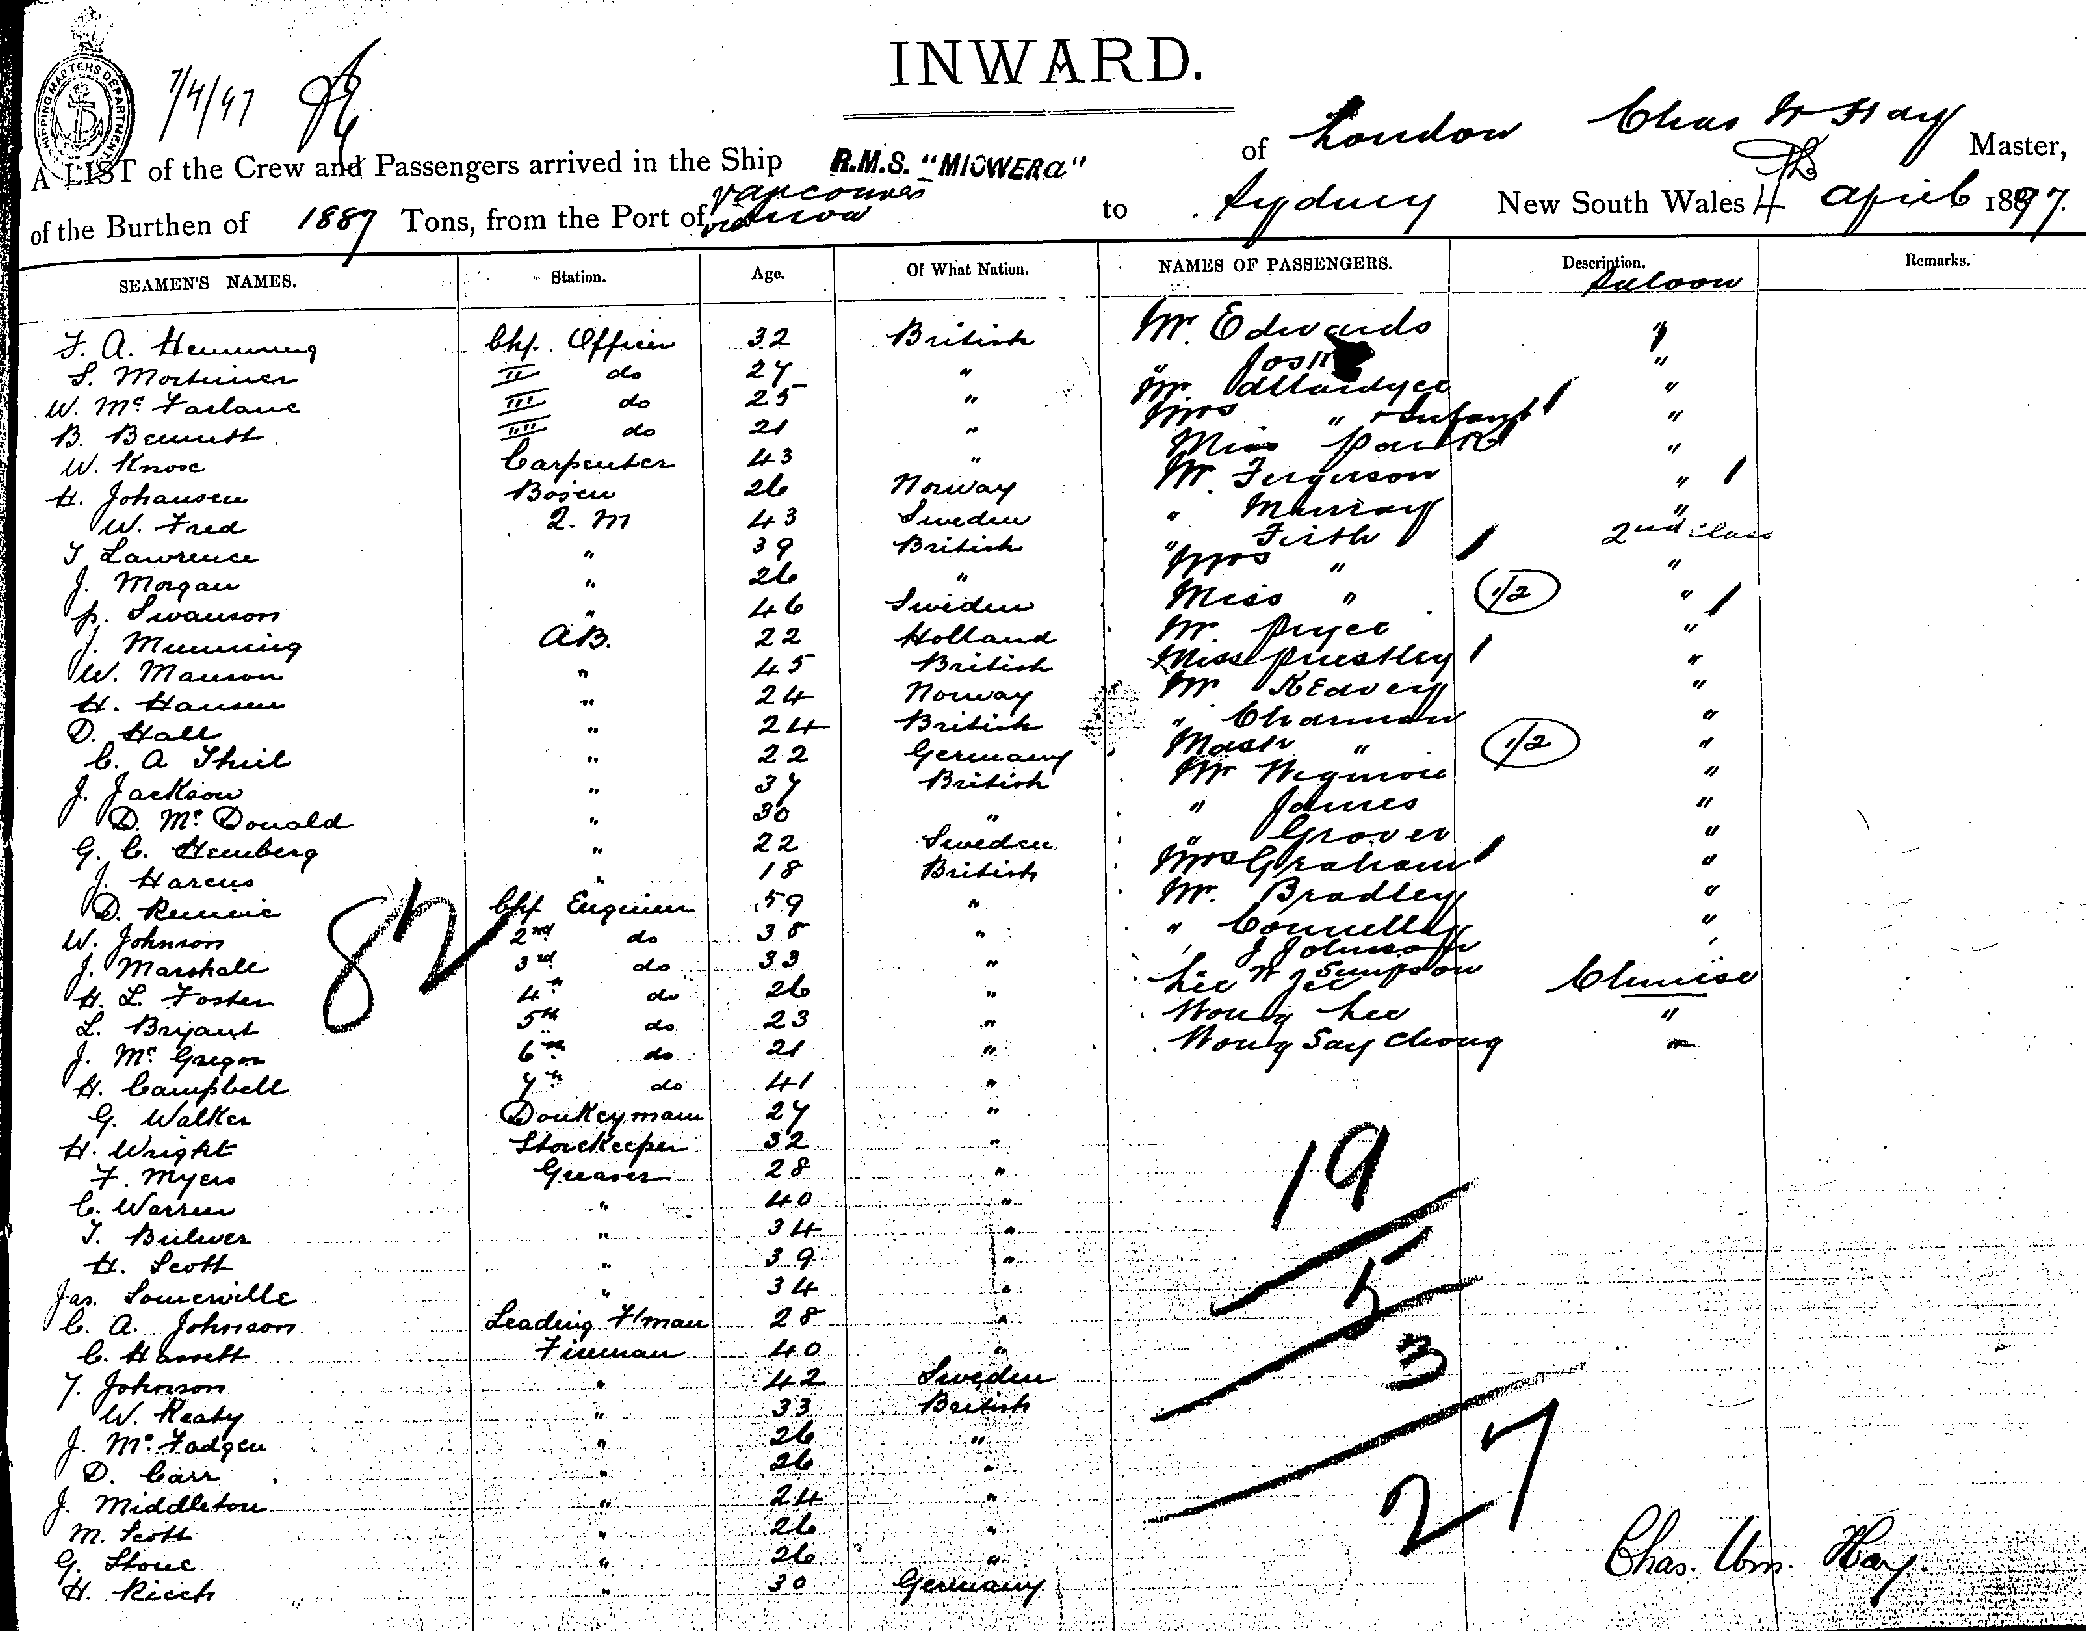 INWARD.
SHIPPING MASTERS DEPARTMENT
7/4/97
A LIST of the Crew and Passengers arrived in the Ship R.M.S. "MIOWERA" of London Chas W Hay Master,
of the Burthen of 1887 Tons, from the Port of Vancouver via to Sydney New South Wales 4th April 1897.
SEAMEN'S NAMES. Station. Age. Of What Nation. NAMES OF PASSENGERS. Description. Remarks.
Saloon
F. A. Hemming Chf. Officer 32 British Mr. Edwards "
S. Mortimer II do 27 " " "
W. Mc Farlane III do 25 " Mr. Allardyce "
B. Bennett IIII do 21 " Mrs " + Infant "
W. Knox Carpenter 43 " Miss "
H. Johansen Bosen 26 Norway Mr. Ferguson "
W. Fred Q. M 43 Sweden " Murray "
T Lawrence " 39 British " Firth 2nd Class
J. Morgan " 26 " Mrs " "
P. Swanson " 46 Sweden Miss " 1/2 "
J. Munning A.B. 22 Holland Mr. Pryce "
W. Manson " 45 British Miss Priestley "
H. Hansen " 24 Norway Mr "
D. Hall " 24 British " Chapman "
C. A Thiel " 22 Germany Mastr " 1/2 "
J. Jackson " 37 British Mr Wigmore "
D. Mc Donald " 30 " " James "
G. C. Hemberg " 22 Sweden " Grover "
J. Harcus " 18 British Mrs Graham "
D. Rennie Chf Engineer 59 " Mr. Bradley "
W. Johnson 2nd do 38 " " Connelly "
J. Marshall 3rd do 33 " J Johnson
W J Simpson
H. L. Foster 4th do 26 " Lee Chinese
L. Bryant 5th do 23 " Wong Lee "
J. Mc Gregor 6th do 21 " Wong Say Chong "
H. Campbell 7th do 41 "
G. Walker Donkeyman 27 "
H. Wright Storekeeper 32 "
F. Myers Greaser 28 "
C. Warren " 40 "
T. Bulwer " 34 "
H. Scott " 39 "
Jas. Somerville " 34 "
C. A. Johnson Leading F'man 28 "
C. Hassett Fireman 40 "
T. Johnson " 42 Sweden
W. Keaty " 33 British
J. Mc Fadgen " 26 "
D. Carr " 26 "
J. Middleton " 24 "
M. Scott " 26 "
G. Stone " 26 "
H. Rieck " 30 Germany
82
19
5
3
27
Chas. Wm. Hay.